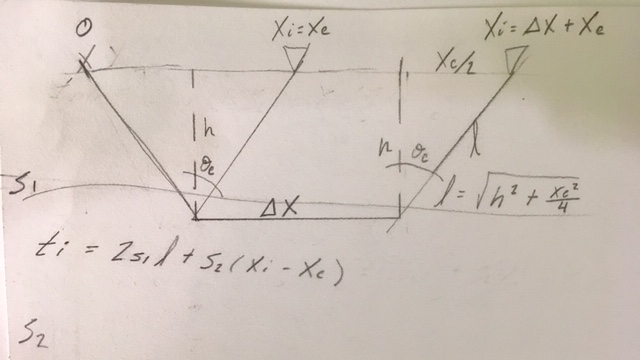 0 Xi=Xc Xi=ΔX+Xc
Xc/2
h h
θc θc l
S1 l=√(h²+Xc²/4)
ΔX
ti = 2s1l+S2(Xi-Xc)
S2